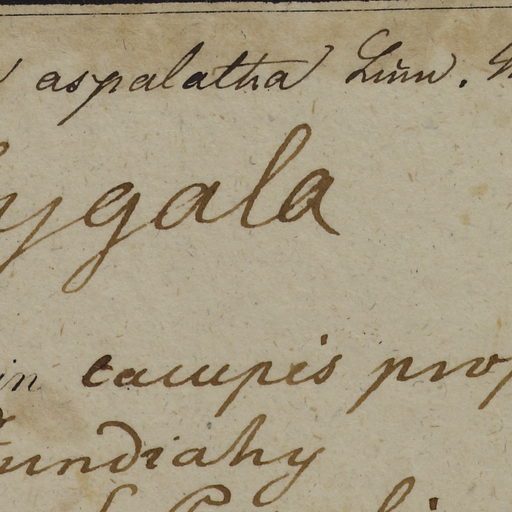 aspalatha Linn.
ygala
in campis prop
undiahy